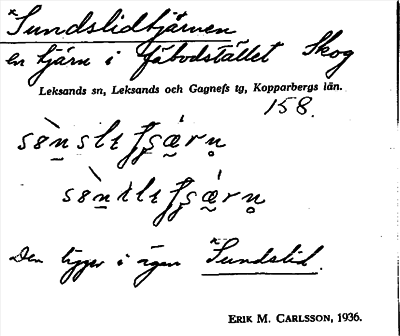 *Sundslidtjärnen
en tjärn i fäbodstället Skog
Leksands sn, Leksands och Gagnefs tg, Kopparbergs län.
158.
Den ligger i ägan *Sundslid.
ERIK M. CARLSSON, 1936.